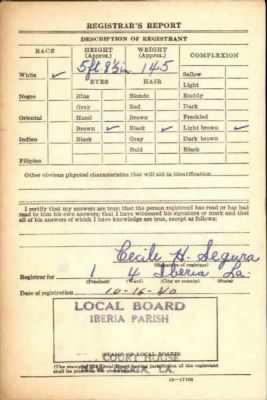 REGISTRAR'S REPORT
DESCRIPTION OF REGISTRANT
RACE HEIGHT (Approx.) WEIGHT (Approx.) COMPLEXION
White ✓ 5 ft 8½ in 145 Sallow
EYES HAIR Light
Negro Blue Blonde Ruddy
Gray Red Dark
Oriental Hazel Brown Freckled
Brown ✓ Black ✓ Light brown ✓
Indian Black Gray Dark brown
Bald Black
Filipino
Other obvious physical characteristics that will aid in identification
I certify that my answers are true; that the person registered has read or has had
read to him his own answers; that I have witnessed his signature or mark and that
all of his answers of which I have knowledge are true, except as follows:
Cecile H. Segura
(Signature of registrar)
Registrar for 1 4 Iberia La.
(Precinct) (Ward) (City or county) (State)
Date of registration 10-16-40
LOCAL BOARD
IBERIA PARISH
COURT HOUSE
(STAMP OF LOCAL BOARD)
(The stamp of the Local Board having jurisdiction of the registrant
shall be placed in the above space.)
16—17105